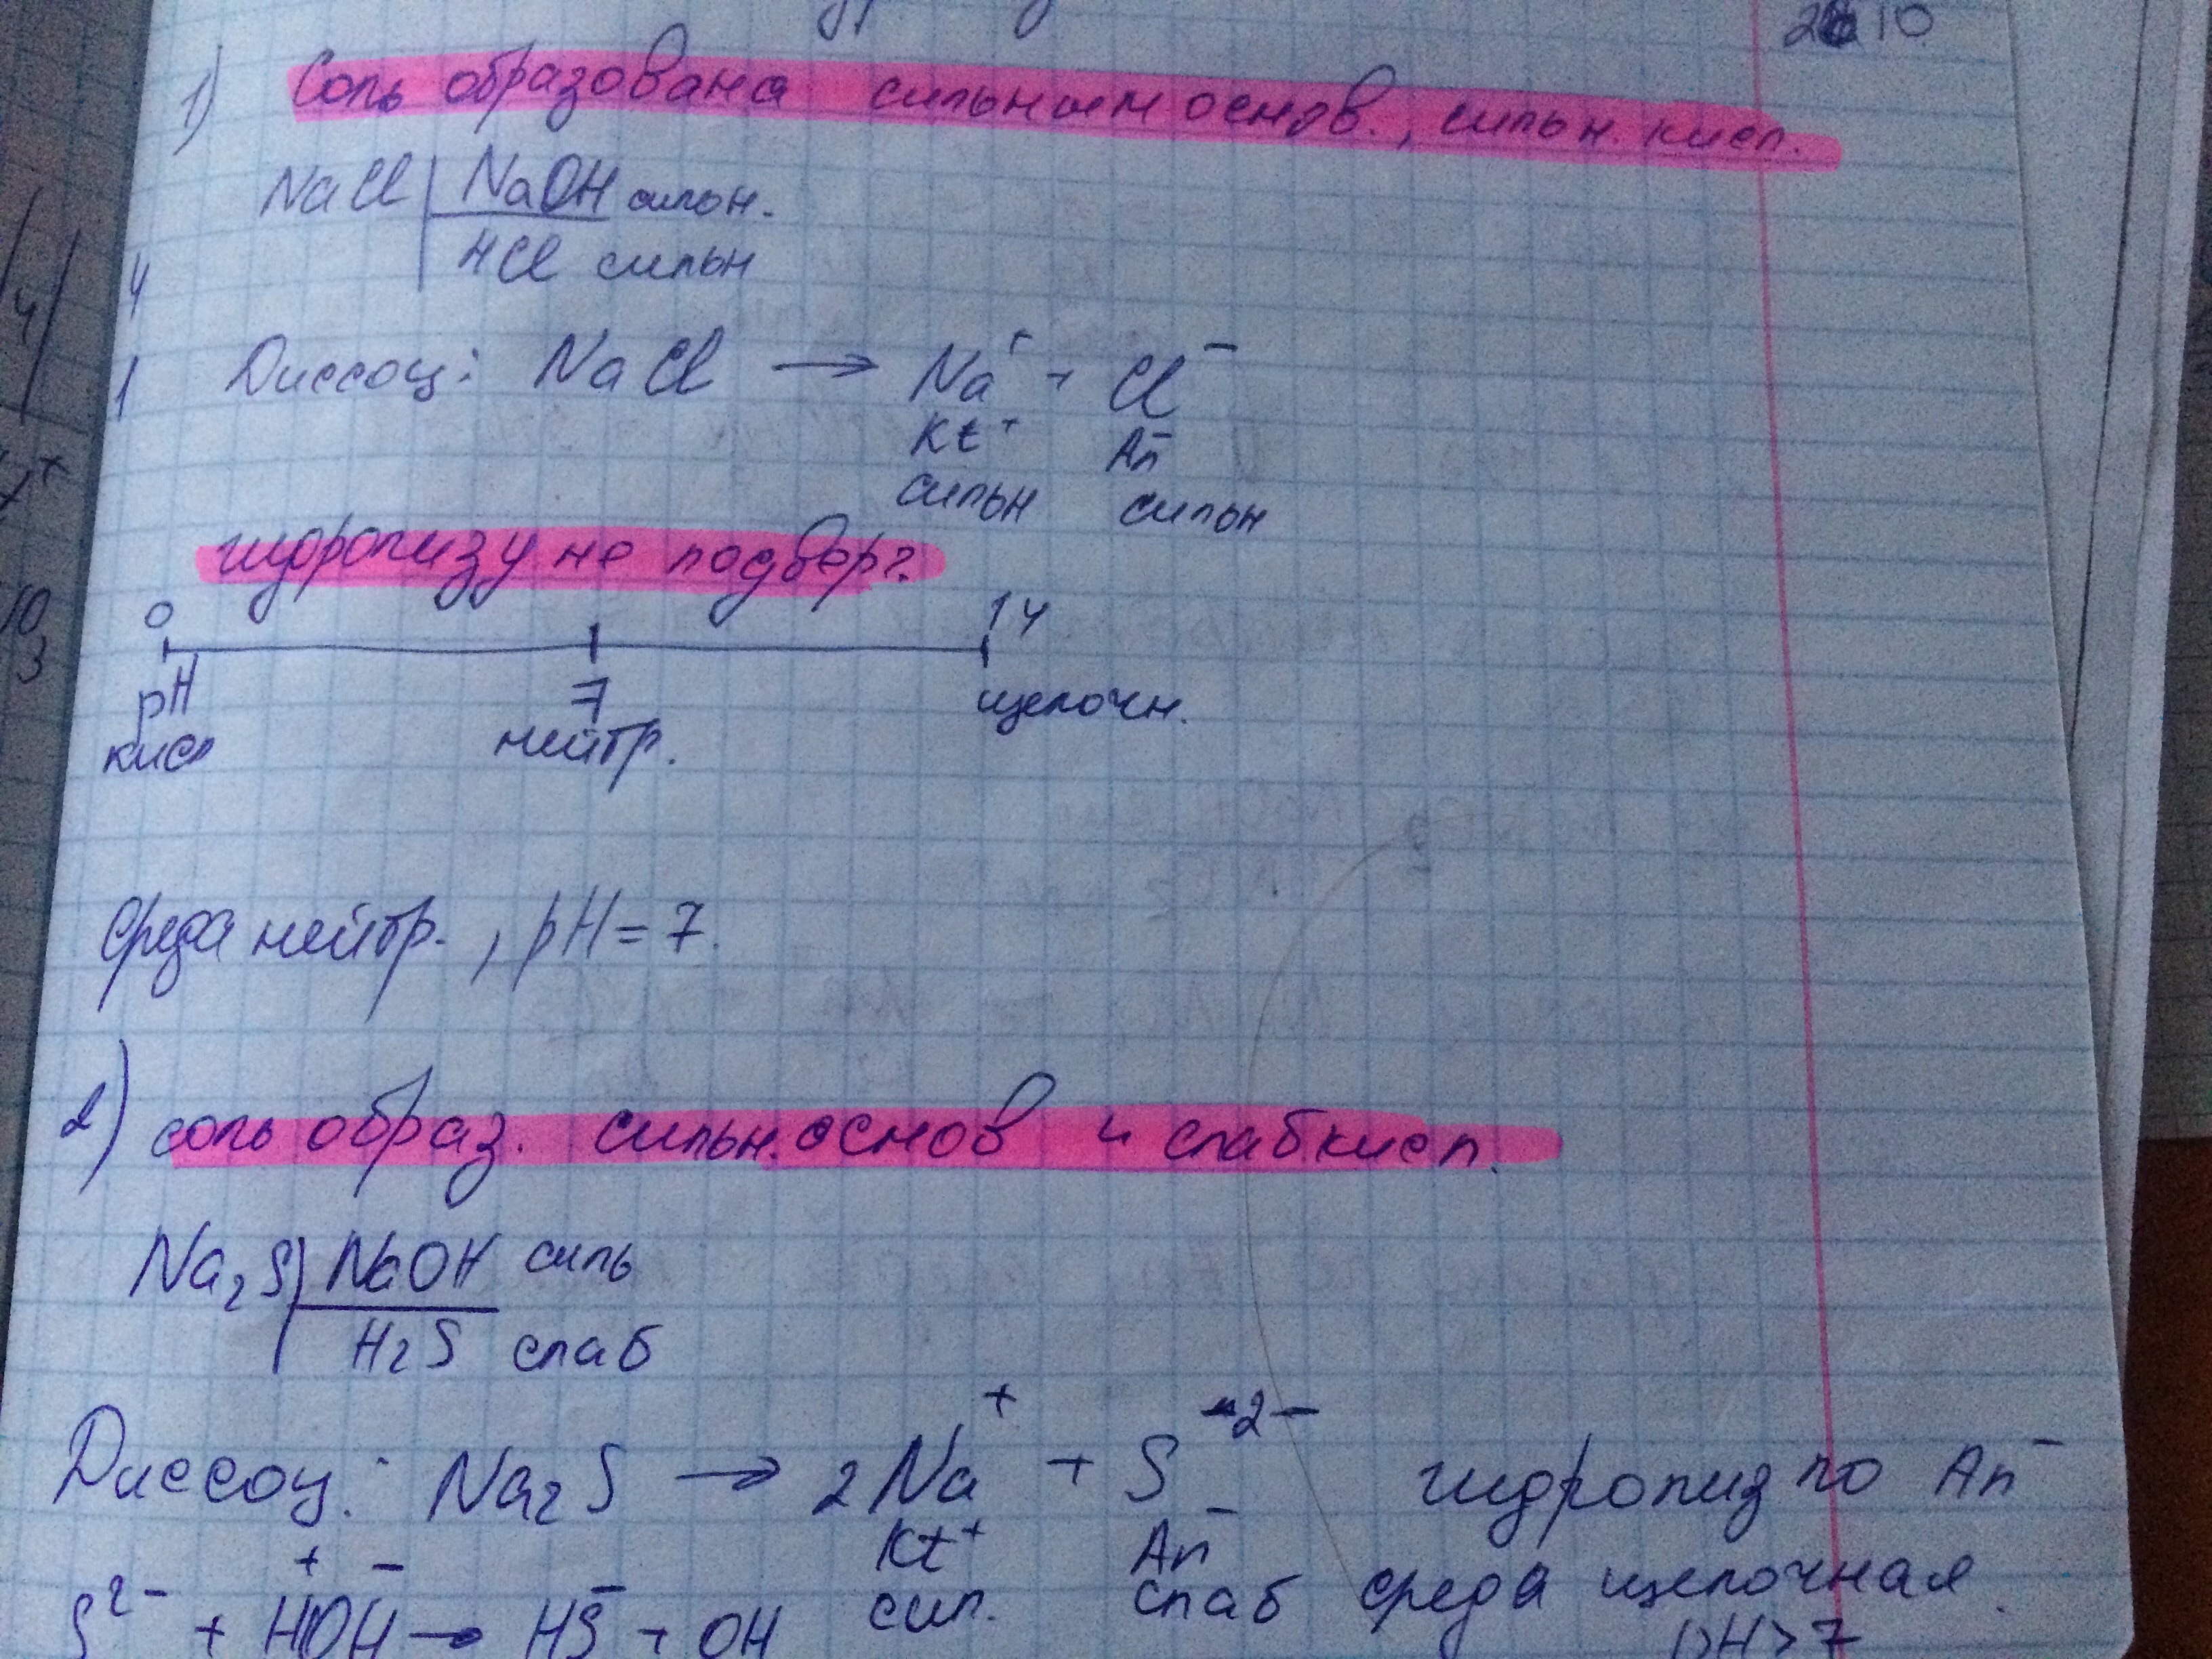 10
1) Соль образована сильным основ., сильн. кисл.
NaCl | NaOH сильн.
HCl сильн
Диссоц: NaCl → Na⁺ + Cl⁻
Kt⁺ An⁻
сильн сильн
гидролизу не подверг.
0 14
pH 7 щелочн.
кисл нейтр.
Среда нейтр., pH = 7.
2) соль образ. сильн. основ и слаб кисл.
Na₂S | NaOH силь
H₂S слаб
Диссоц: Na₂S → 2Na⁺ + S²⁻ гидролиз по An⁻
Kt⁺ An⁻
сил. слаб среда щелочная.
S²⁻ + H⁺OH⁻ → HS⁻ + OH pH > 7